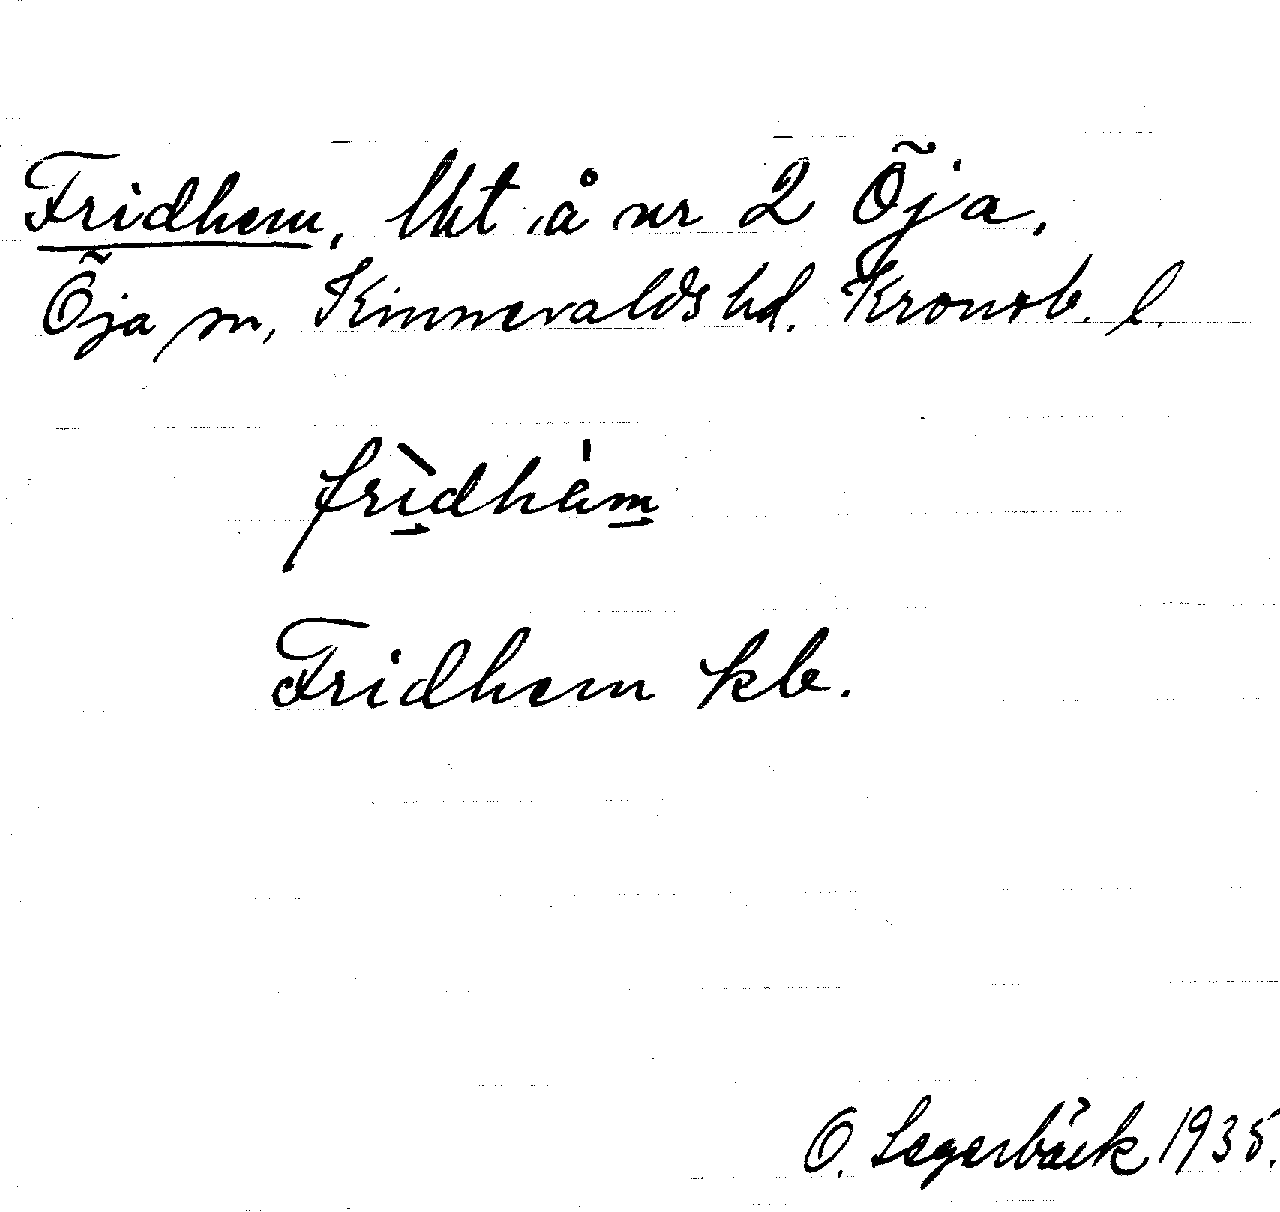 Fridhem, lht å nr 2 Öja,
Öja sn, Kinnevalds hd. Kronob. l.
frìdhèm
Fridhem kb.
O. Segerbäck 1935.